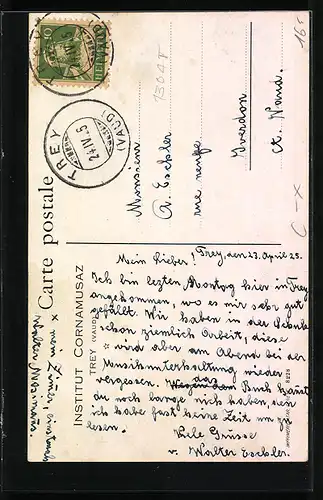 Carte postale
INSTITUT CORNAMUSAZ
TREY (VAUD)
TREY
24 IV 25
(VAUD)
10
13048
16.-
C - X
Monsieur
A. Eschler
rue
Yverdon
ct. Vaud.
Mein Lieber! Trey, den 23. April 25.
Ich bin lezten Montag hier in Trey
angekommen, wo es mir sehr gut
gefällt. Wir haben in der Schule
schon ziemlich Arbeit, diese
wird aber am Abend bei der
Musikunterhaltung wieder
vergessen. das Buch kannst
du noch lange nich haben, den
ich habe fast keine Zeit um zu
lesen.
Viele Grüsse
v. Walter Eschler.
x mein Zimer
8228